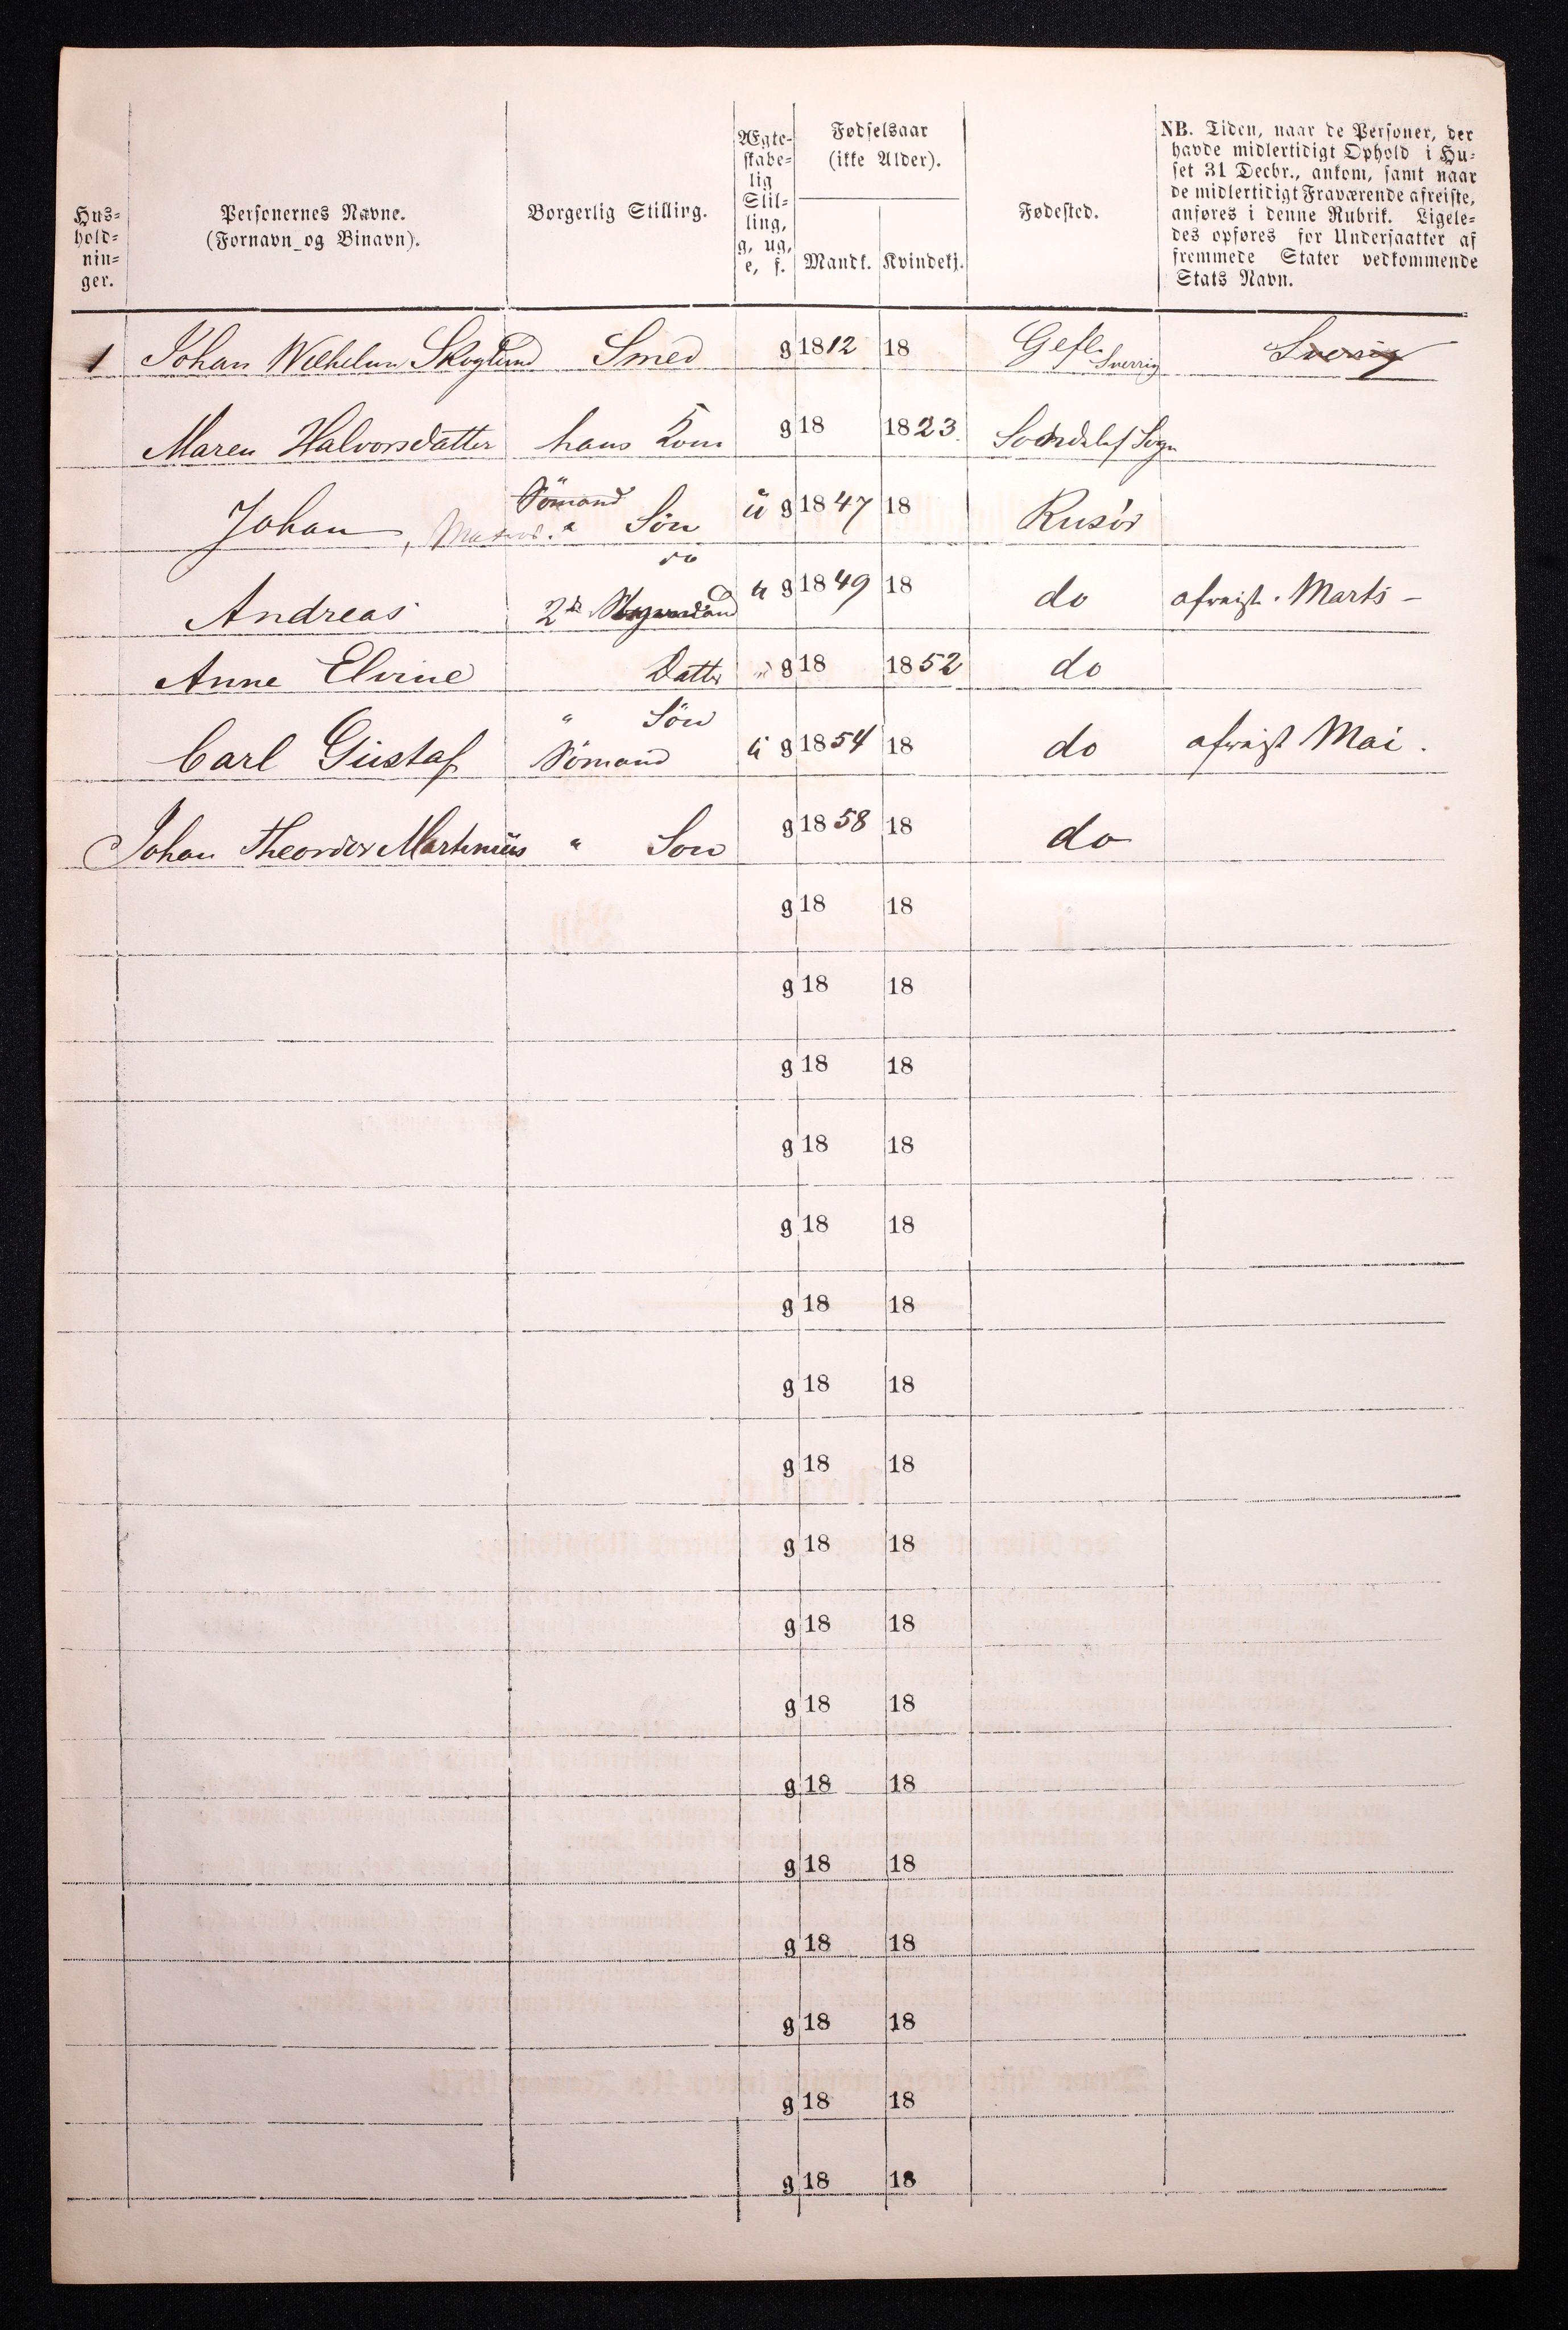 Hus-
hold-
nin-
ger.
Personernes Navne.
(Fornavn og Binavn).
Borgerlig Stilling.
Ægte-
skabe-
lig
Stil-
ling,
g, ug,
e, f.
Fødselsaar
(ikke Alder).
Mandk.
Kvindekj.
Fødested.
NB. Tiden, naar de Personer, der
havde midlertidigt Ophold i Hu-
set 31 Decbr., ankom, samt naar
de midlertidigt Fraværende afreiste,
anføres i denne Rubrik. Ligele-
des opføres for Undersaatter af
fremmede Stater vedkommende
Stats Navn.
1 Johan Wilhelm Skoglund Smed g 1812 18 Gefle Sverrig Sverig
Maren Halvorsdatter hans Kone g 18 1823 Söndelef Sogn
Sömand
Johan, Matros. " Sön u g 1847 18 Risör
do
Andreas 2d u g 1849 18 do afreist. Marts -
Anne Elvine Datter " g 18 1852 do
" Sön
Carl Gustaf Sömand u g 1854 18 do afreist Mai.
Johan Theodor Martinius " Sön g 1858 18 do
g 18 18
g 18 18
g 18 18
g 18 18
g 18 18
g 18 18
g 18 18
g 18 18
g 18 18
g 18 18
g 18 18
g 18 18
g 18 18
g 18 18
g 18 18
g 18 18
g 18 18